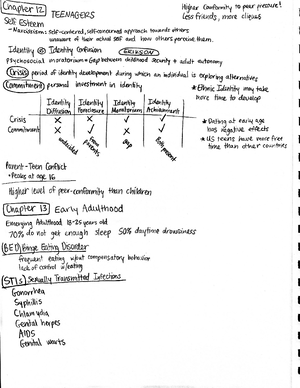 Chapter 12 TEENAGERS
Higher Conformity to peer pressure!
Less friends, more cliques
Self Esteem
- Narcissism: self-centered, self-concerned approach towards others
unaware of their actual self and how others perceive them.
Identity vs Identity Confusion ERIKSON
Psychosocial moratorium = Gap between childhood security + adult autonomy
Crisis: period of identity development during which an individual is exploring alternatives
Commitment: personal investment in identity
* Ethnic Identity may take
more time to develop
Identity Diffusion Identity Foreclosure Identity Moratorium Identity Achievement
Crisis X X ✓ ✓
Commitment X ✓ X ✓
undecided
parents
gap
Both present
* Dating at early age
has negative effects
* US teens have more free
time than other countries
Parent-Teen Conflict
- Peaks at age 16
Higher level of peer-conformity than children
Chapter 13 Early Adulthood
Emerging Adulthood 18-25 years old
70% do not get enough sleep 50% daytime drowsiness
(BED) Binge Eating Disorder
frequent eating w/out compensatory behavior
lack of control w/eating
(STIs) Sexually Transmitted Infections
Gonorrhea
Syphilis
Chlamydia
Genital herpes
AIDS
Genital warts